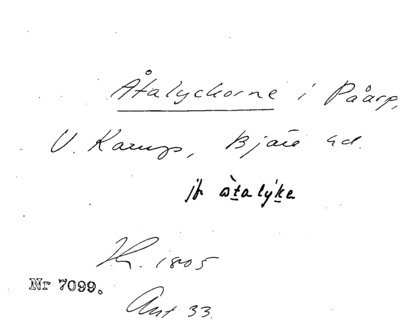 Åtalyckorne i Påarp,
V. Karup, Bjäre hd.
jfr åtalyke
Th. 1805
Nr 7099.
Ant 33.